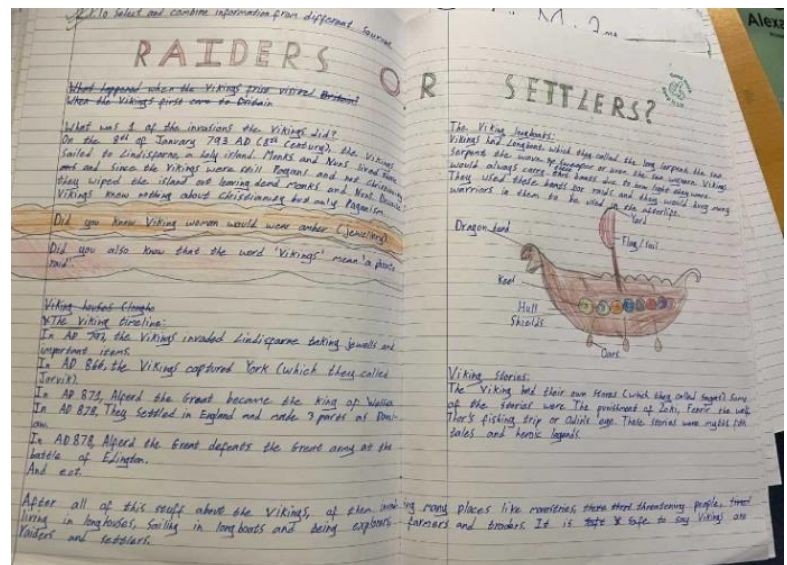 To select and combine information from different sources
RAIDERS OR SETTLERS?
What happened when the Vikings first visited Britain?
When the Vikings first came to Britain
What was 1 of the invasions the Vikings did?
On the 8th of January 793 AD (8th Century), the Vikings
sailed to Lindisfarne, a holy island. Monks and Nuns lived there
and since the Vikings were still Pagans and not Christianity
they wiped the island out leaving dead Monks and Nuns.
Vikings know nothing about Christianity but only Paganism.
Did you know Viking woman would wear amber (jewellery)
Did you also know that the word 'Vikings' mean 'a pirate
raid'.
Viking houses (longho
The Viking timeline:
In AD 793, the Vikings invaded Lindisfarne taking jewells and
important items.
In AD 866, the Vikings captured York (which they called
Jorvik).
In AD 871, Alferd the Great became the king of
In AD 878, They settled in England and made 3 parts of
In AD 878, Alferd the Great defeats the Great army at the
battle of Edington.
And ect.
The Viking longboats:
Vikings had Longboats which they called the long serpent, the sea
serpent the wave or even the sea Vikings
would always carry these boats due to how light they were.
They used these boats for raids and they would bury many
warriors in them to be used in the afterlife.
Yard
Dragon head
Flag/Sail
Keel
Hull
Shields
Oars
Viking Stories:
The Viking had their own stores (which they called sagas) Some
of the stories were The punishment of Loki, Fenrir the wolf
Thor's fishing trip or Odin's eye. These stories were myths folk
tales and heroic legends.
After all of this stuff above the Vikings, of them invading many places like monestries, threatening people,
living in longhouses, Sailing in longboats and being explorers farmers and traders. It is safe to say Vikings are
raiders and settlers.
Alexa